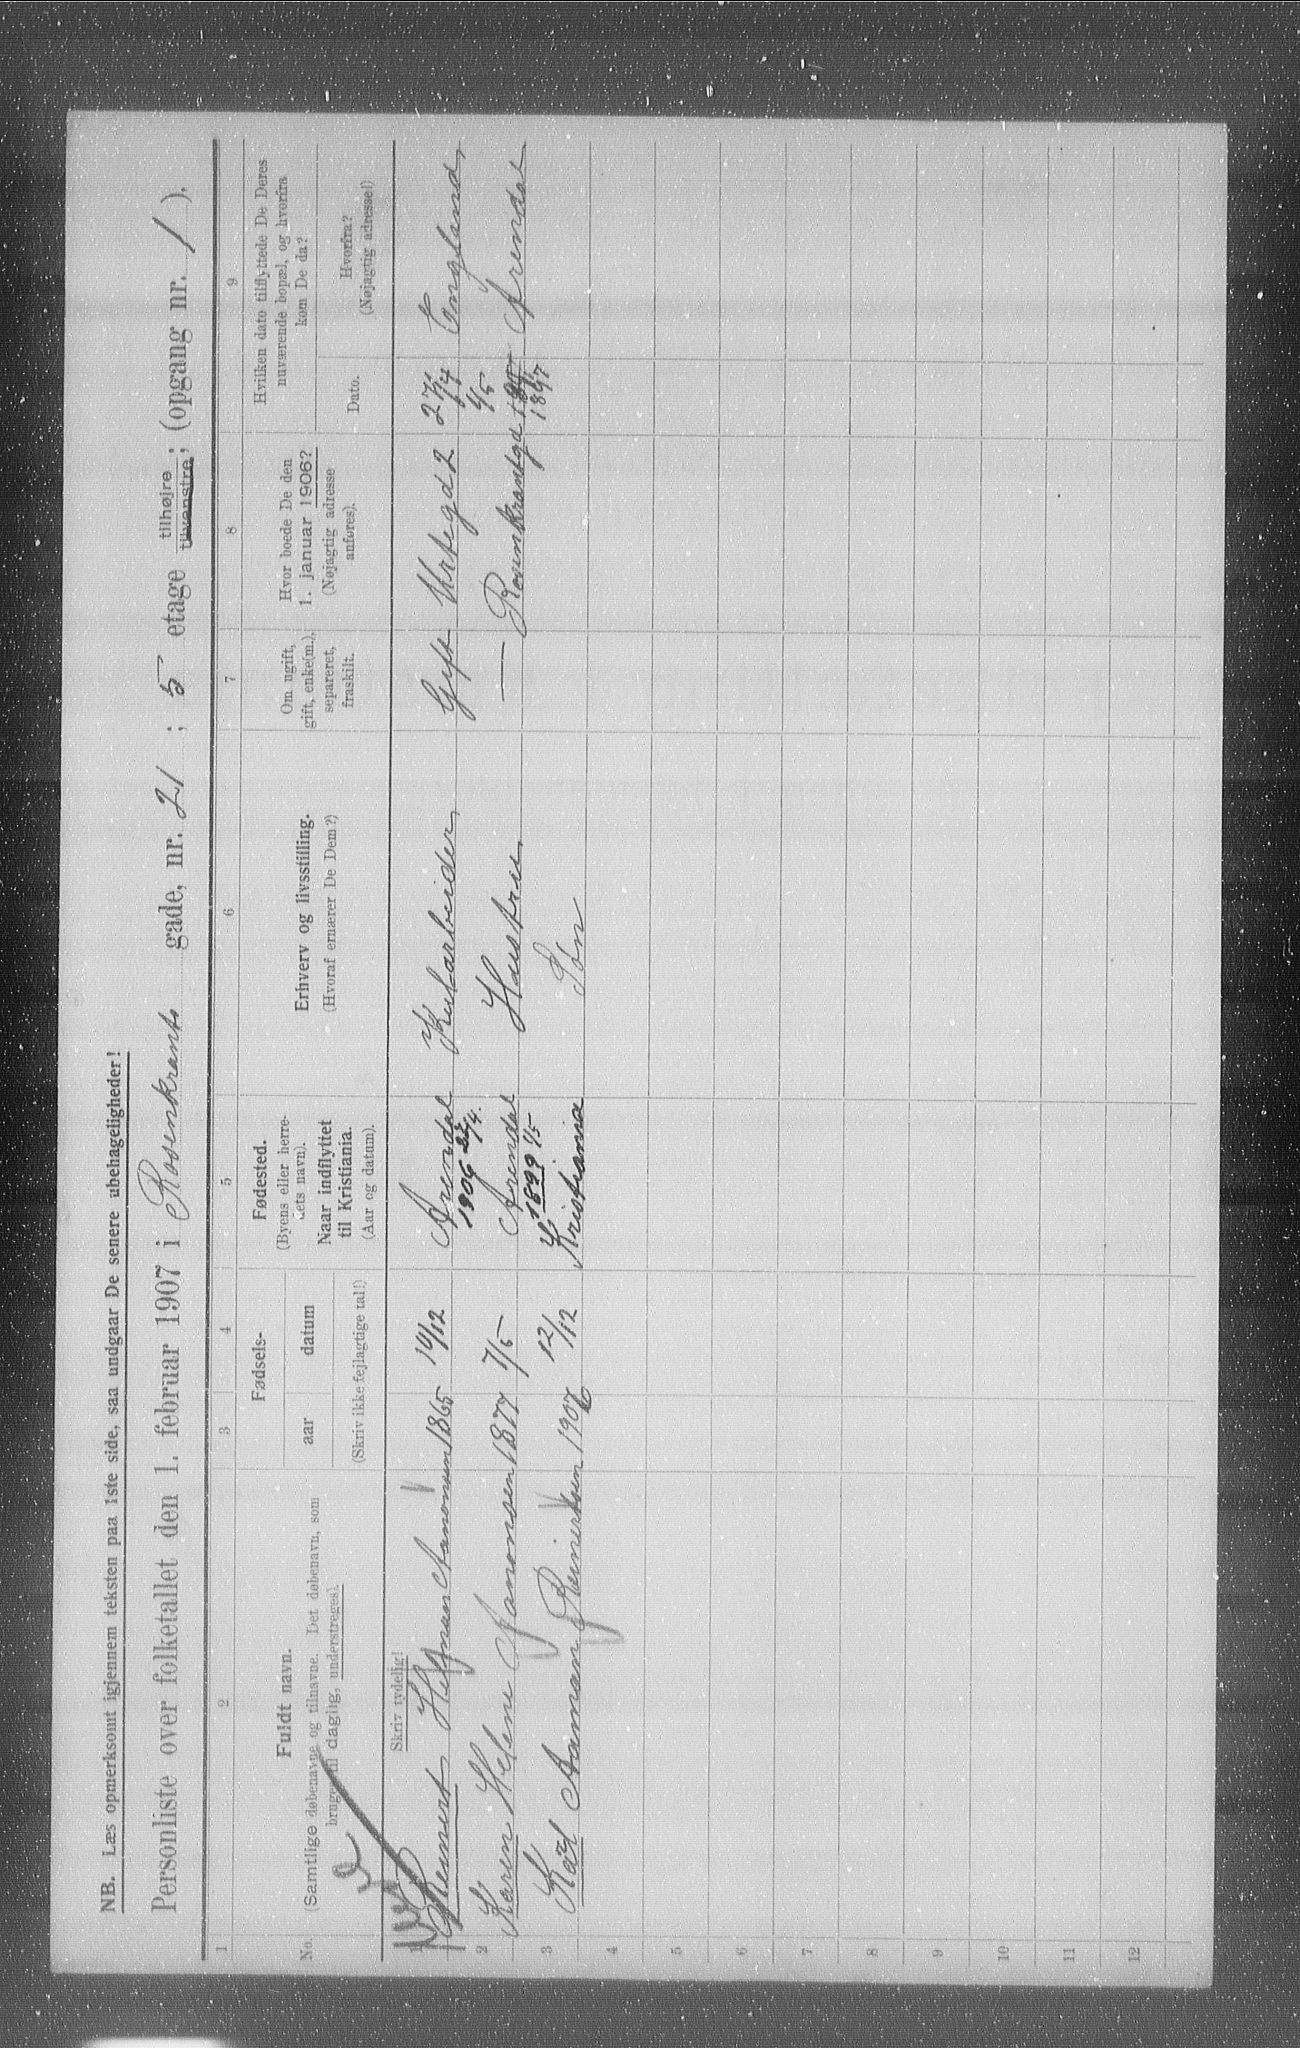 NB. Læs opmerksomt igjennem teksten paa 1ste side, saa undgaar De senere ubehageligheder!
Personliste over folketallet den 1. februar 1907 i Rosenkrants gade, nr. 21 ; 5 etage tilhøjre ; tilvenstre ; (opgang nr. 1 ).
1 2 3 4 5 6 7 8 9
No.
Fuldt navn.
(Samtlige døbenavne og tilnavne. Det døbenavn, som
bruges til daglig, understreges).
Skriv tydelig!
Fødsels-
aar datum
(Skriv ikke fejlagtige tal!)
Fødested.
(Byens eller herre-
dets navn).
Naar indflyttet
til Kristiania.
(Aar og datum).
Erhverv og livsstilling.
(Hvoraf ernærer De Dem?)
Om ugift,
gift, enke(m.),
separeret,
fraskilt.
Hvor boede De den
1. januar 1906?
(Nøjagtig adresse
anføres).
Hvilken dato tilflyttede De Deres
nuværende bopæl, og hvorfra
kom De da?
Dato.
Hvorfra?
(Nøjagtig adresse!)
1 Reinert Aanonsen 1865 14/12 Arendal 1906 Kularbeider Gift Urtegd 2 England
2 Karen Helene Aanonsen 1877 7/5 Arendal 1899 1/5 Hustru — Rosenkrantsgd 1/5 1897 Arendal
3 Karl Aaman Reinertsen 1906 12/12 Kristiania Søn
4
5
6
7
8
9
10
11
12